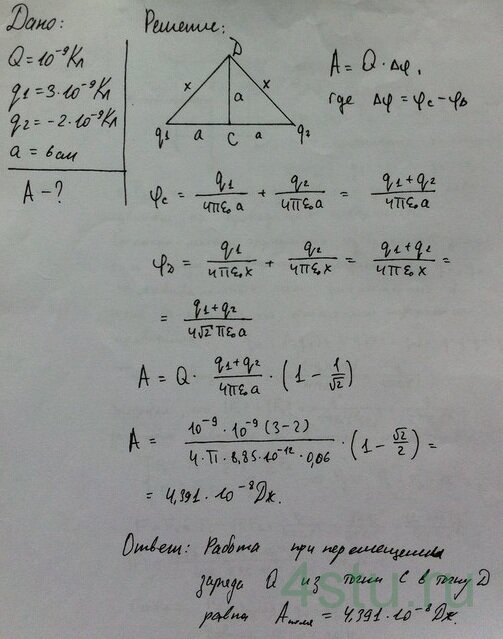 Дано:
Q = 10⁻⁹ Кл
q1 = 3·10⁻⁹ Кл
q2 = -2·10⁻⁹ Кл
a = 6 см
A - ?
Решение:
D
x a x
q1 a C a q2
A = Q · Δφ,
где Δφ = φc - φD
φc = q1/4πε₀a + q2/4πε₀a = q1+q2/4πε₀a
φD = q1/4πε₀x + q2/4πε₀x = q1+q2/4πε₀x =
= q1+q2/4√2πε₀a
A = Q · q1+q2/4πε₀a · (1 - 1/√2)
A = 10⁻⁹·10⁻⁹(3-2)/4·π·8,85·10⁻¹²·0,06 · (1 - √2/2) =
= 4,391·10⁻⁸ Дж.
Ответ: Работа при перемещении
заряда Q из точки C в точку D
равна Aполя = 4,391·10⁻⁸ Дж.
4stu.ru